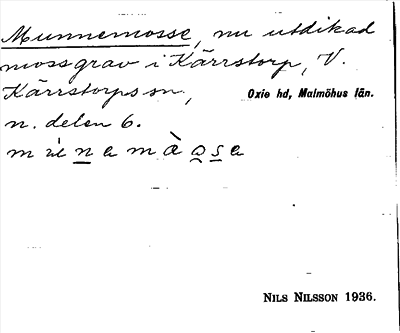 Munnemosse, nu utdikad
mossgrav i Kärrstorp, V.
Kärrstorps sn, Oxie hd, Malmöhus län.
n. delen 6.
NILS NILSSON 1936.